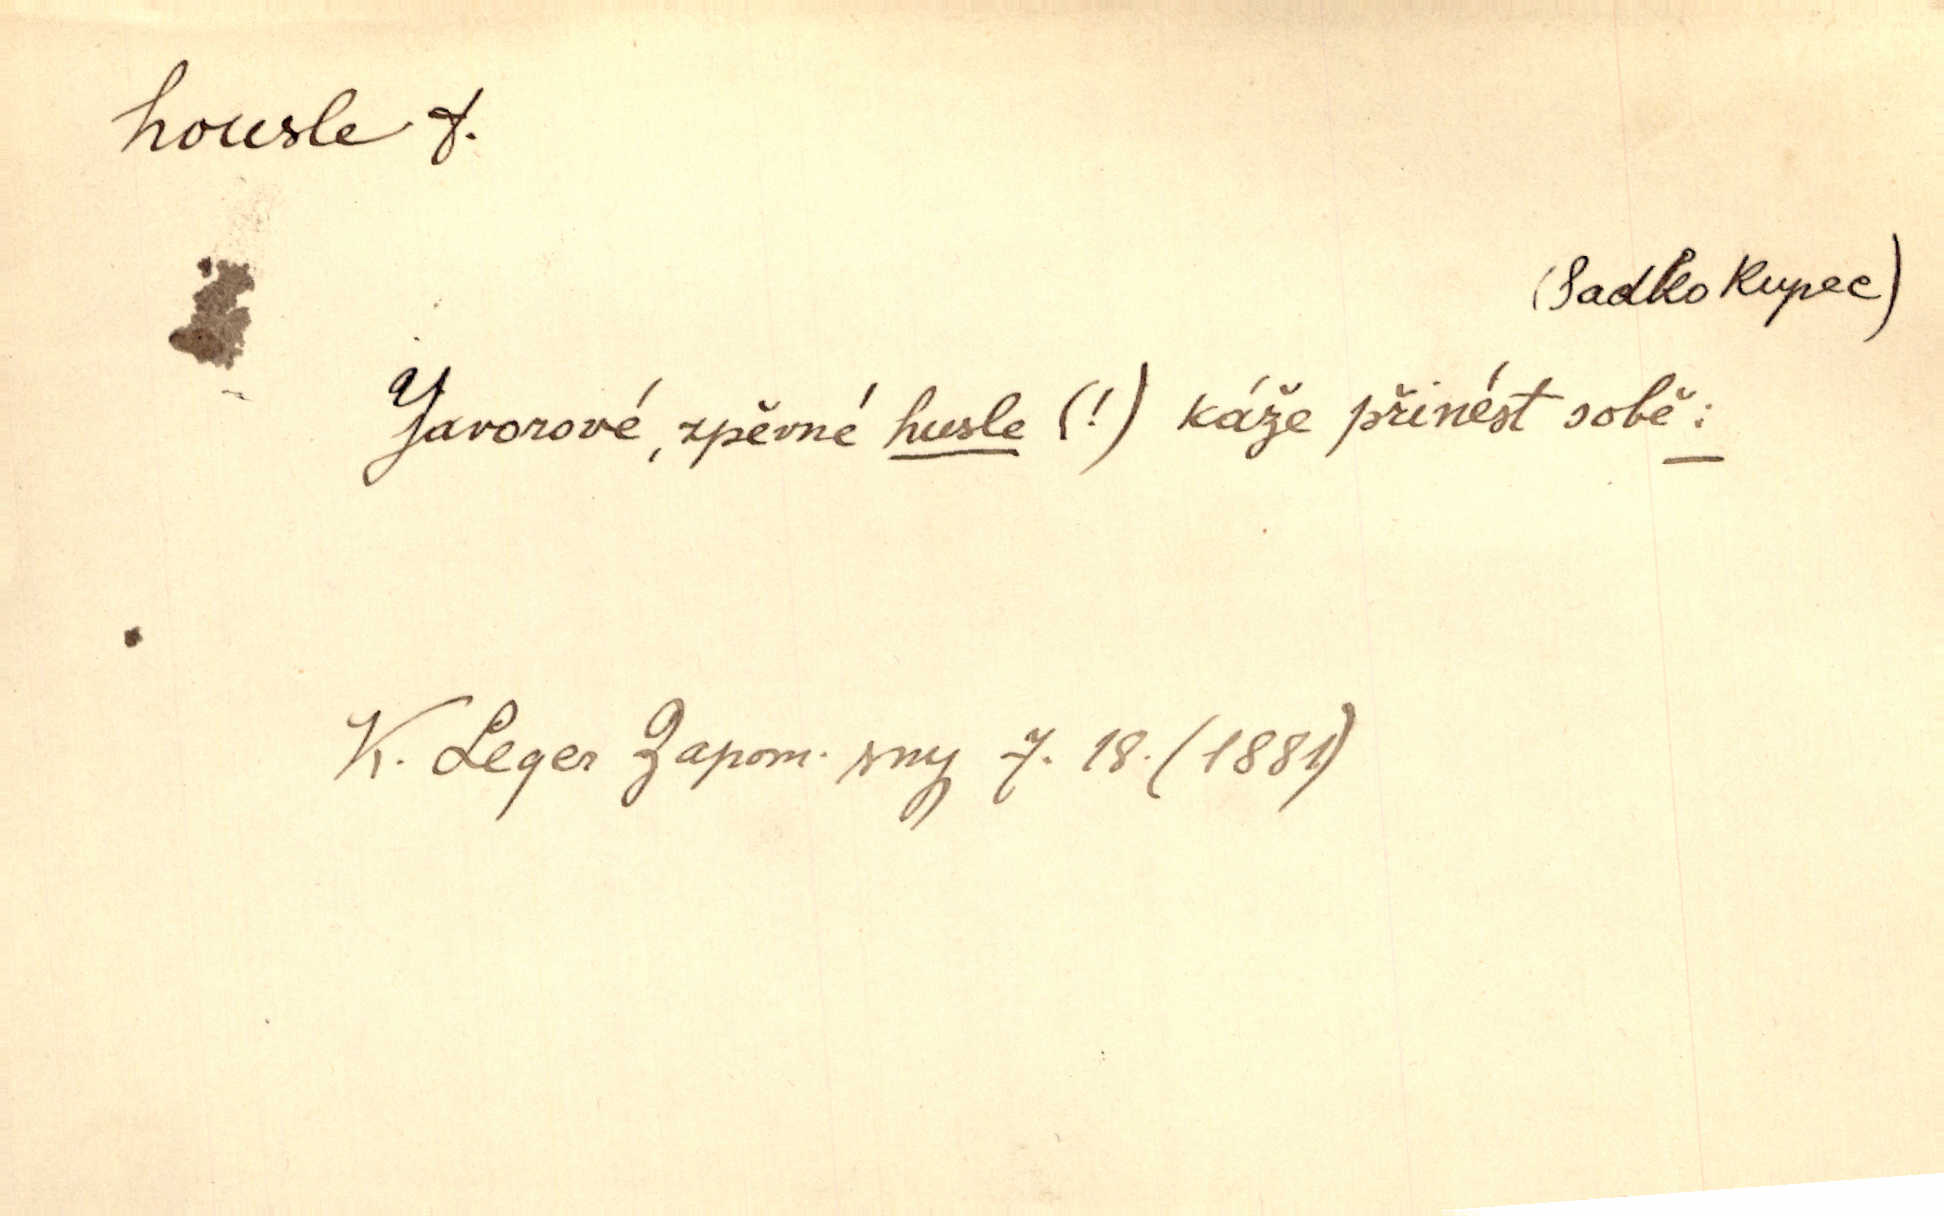 housle f.
(Sadko kupec)
Javorové, zpěvné husle (!) káže přinést sobě:
K. Leger Zapom. sny 7. 18. (1881)